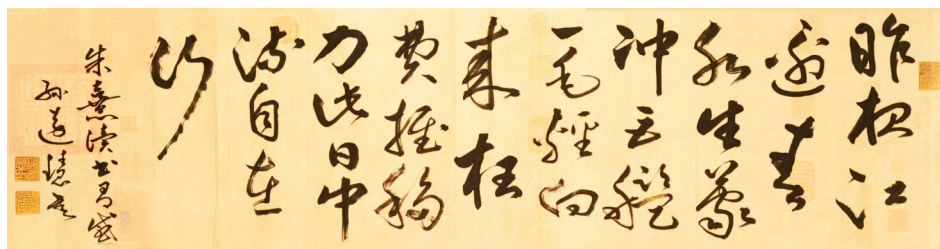 昨夜江
邊春
水生蒙
冲巨艦
一毛輕向
來枉
費推移
力此日中
流自在
行
朱熹讀书有感